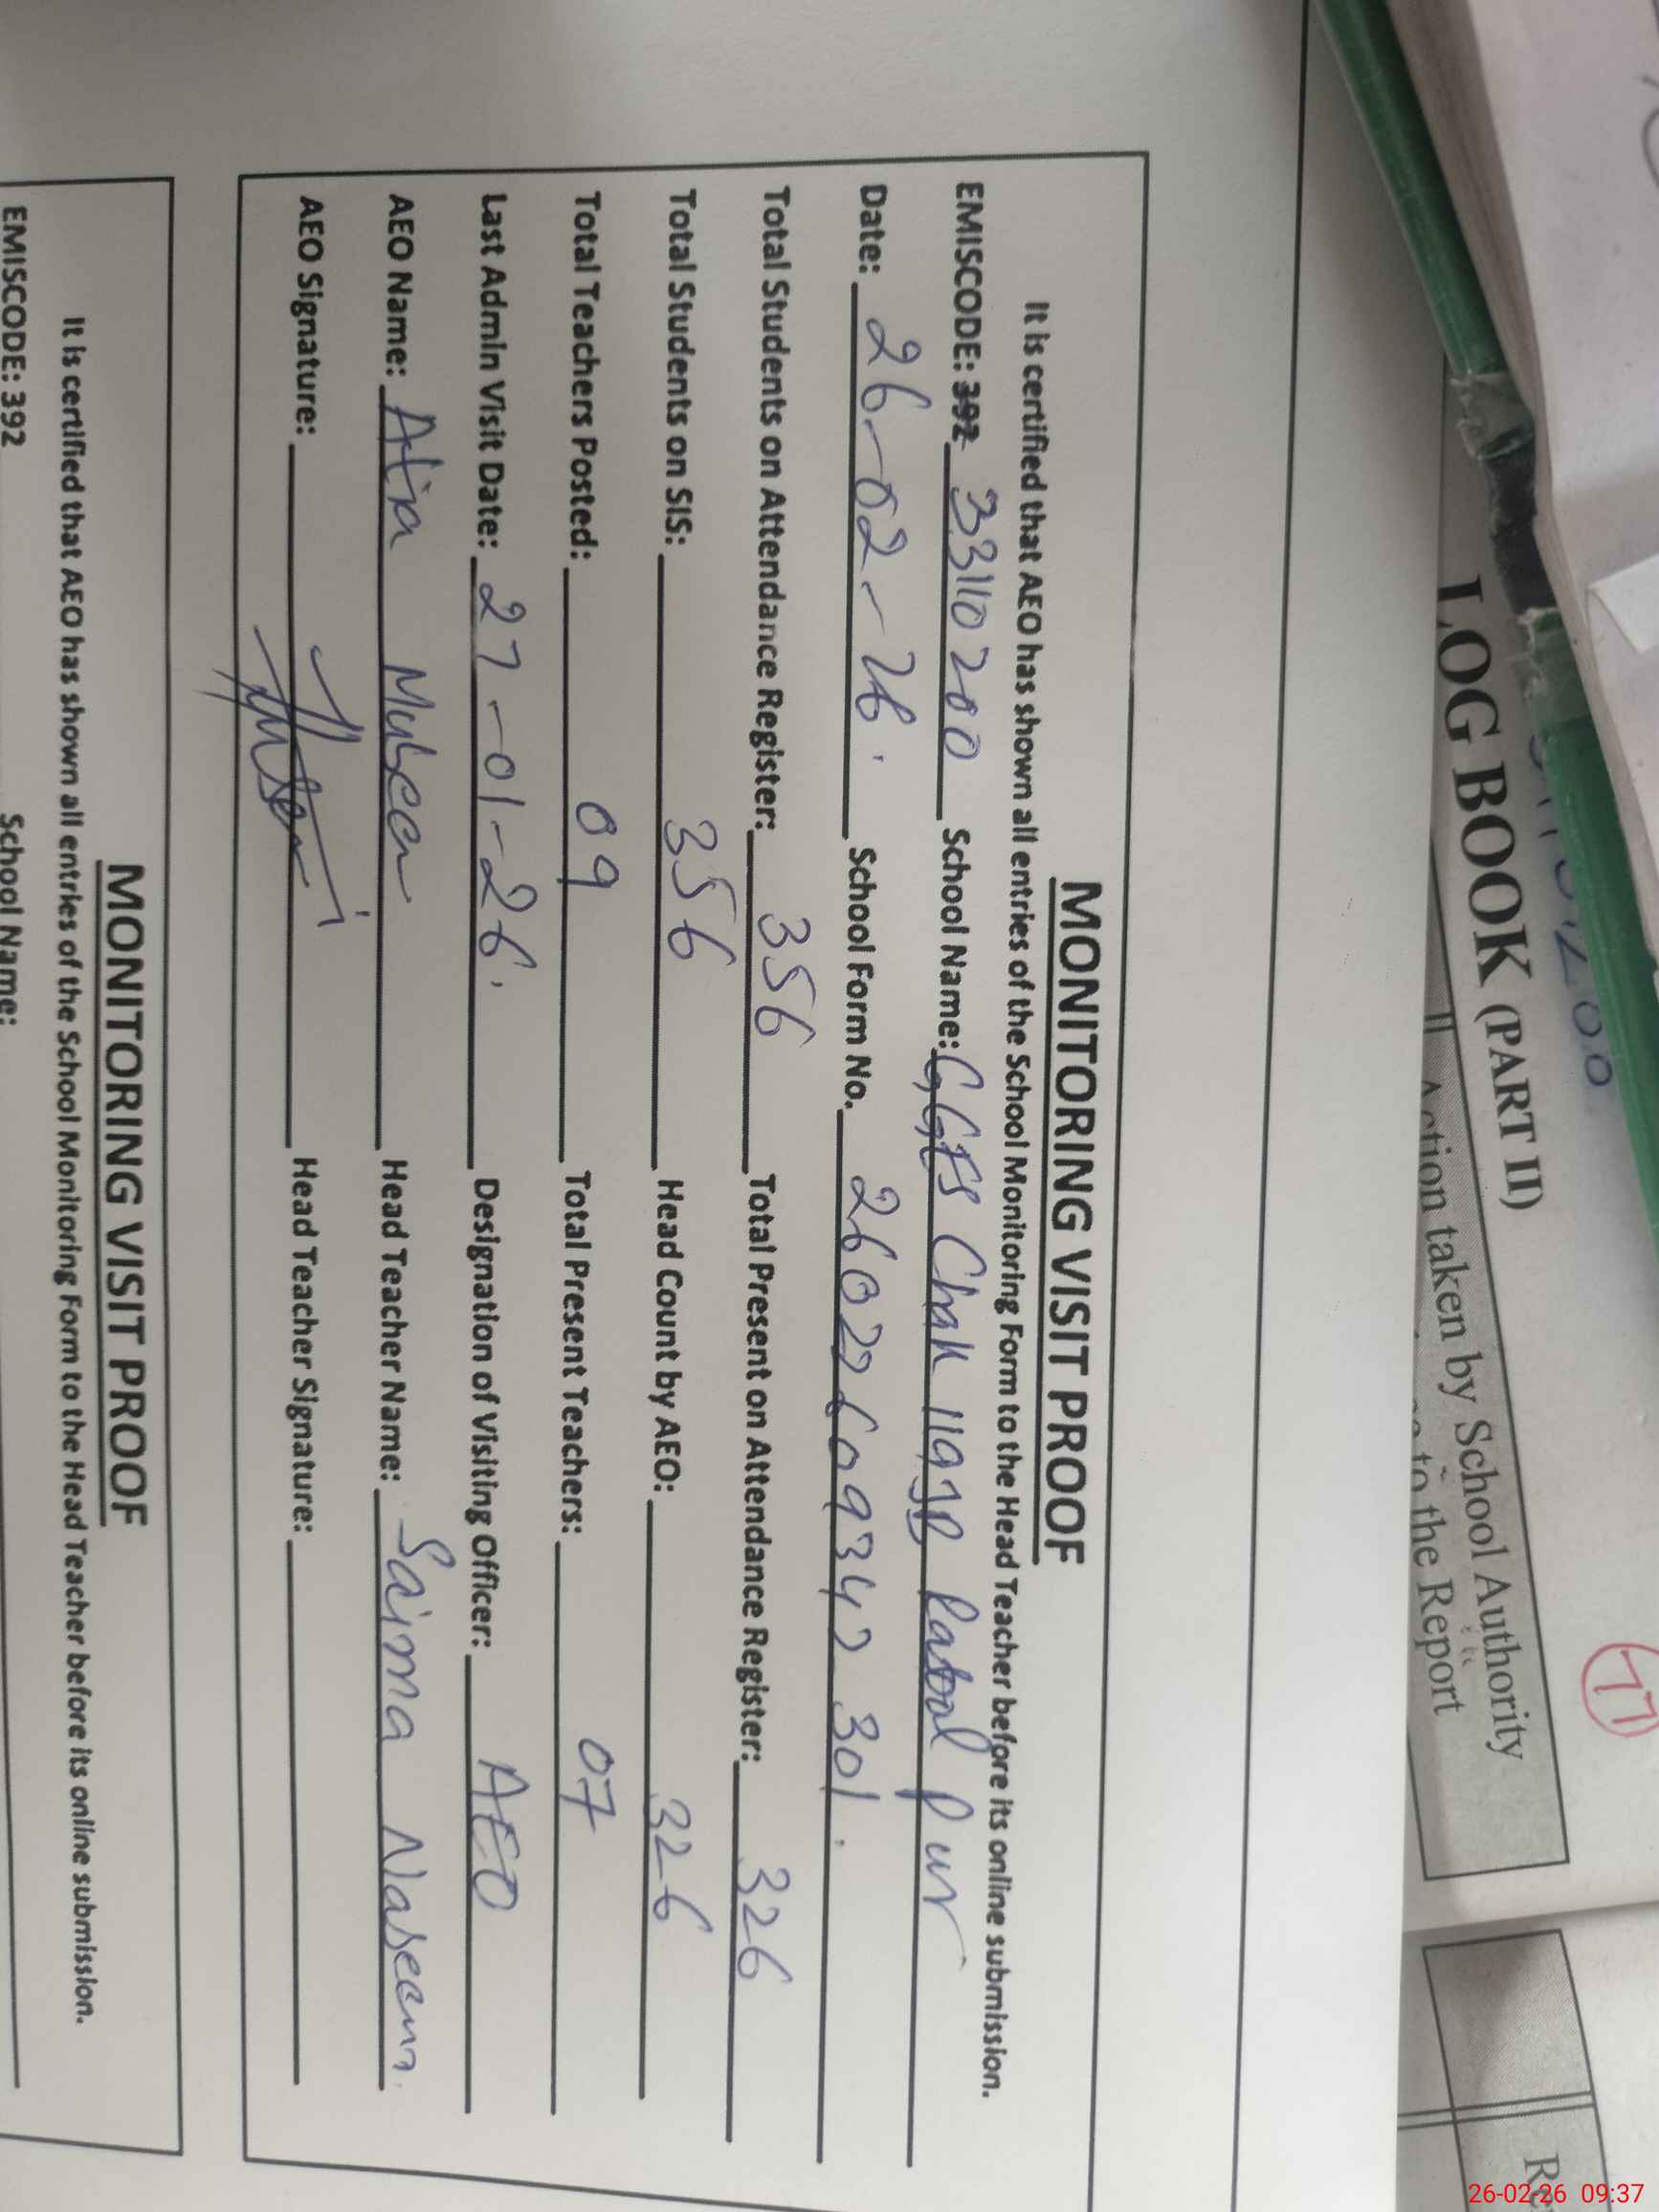 LOG BOOK (PART II)
77
Action taken by School Authority
to the Report
MONITORING VISIT PROOF
It is certified that AEO has shown all entries of the School Monitoring Form to the Head Teacher before its online submission.
EMISCODE: 392 33110200 School Name: GGES Chak 119JB Pur
Date: 26-02-26. School Form No.
Total Students on Attendance Register: 356 Total Present on Attendance Register: 326
Total Students on SIS: 356 Head Count by AEO: 326
Total Teachers Posted: 09 Total Present Teachers: 07
Last Admin Visit Date: 27-01-26. Designation of Visiting Officer: AEO
AEO Name: Atia Mubeen Head Teacher Name: Saima Naseem
AEO Signature: Head Teacher Signature:
MONITORING VISIT PROOF
It is certified that AEO has shown all entries of the School Monitoring Form to the Head Teacher before its online submission.
EMISCODE: 392 School Name:
26-02-26 09:37